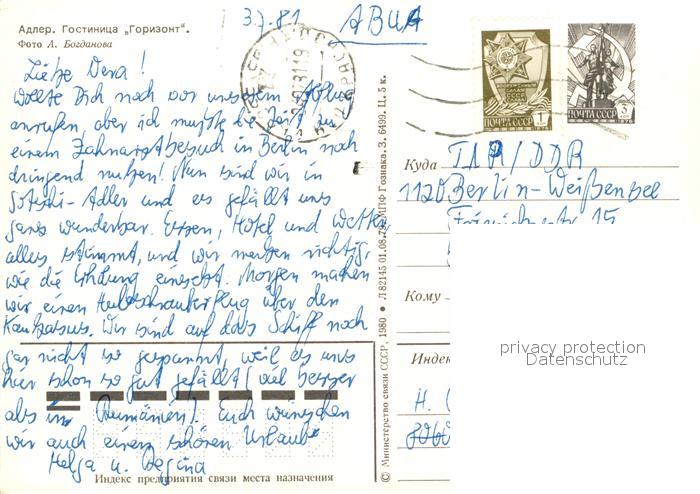 Адлер. Гостиница „Горизонт".
Фото А. Богданова
3.7.81
АВИА
Liebe Vera!
Wollte Dich noch vor unserem Abflug
anrufen, aber ich mußte die Zeit zu
einem Zahnarztbesuch in Berlin noch
dringend nutzen! Nun sind wir in
Sotschi-Adler und es gefällt uns
ganz wunderbar. Essen, Hotel und Wetter
alles stimmt, und wir merken richtig,
wie die Erholung einsetzt. Morgen machen
wir einen Hubschrauberflug über den
Kaukasus. Wir sind auf das Schiff noch
gar nicht so gespannt, weil es uns
hier schon so gut gefällt (viel besser
als in Rumänien). Euch wünschen
wir auch einen schönen Urlaub
Helga u. Regina
Индекс предприятия связи места назначения
© Министерство связи СССР, 1980 ● Л 82145 01.08.79. МПФ Гознака. З. 6499. Ц. 5 к.
ПОЧТА СССР 1
ПОЧТА СССР 3 КОП
Куда ГДР/DDR
1120 Berlin-Weißensee
15
Кому
privacy protection
Datenschutz
Индек
H.
8060